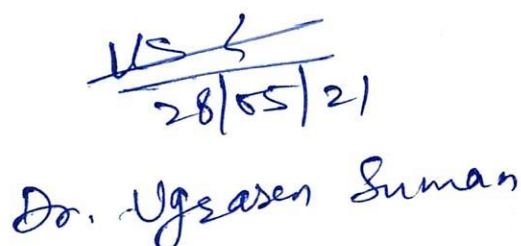 US
28/05/21
Dr. Ugrasen Suman